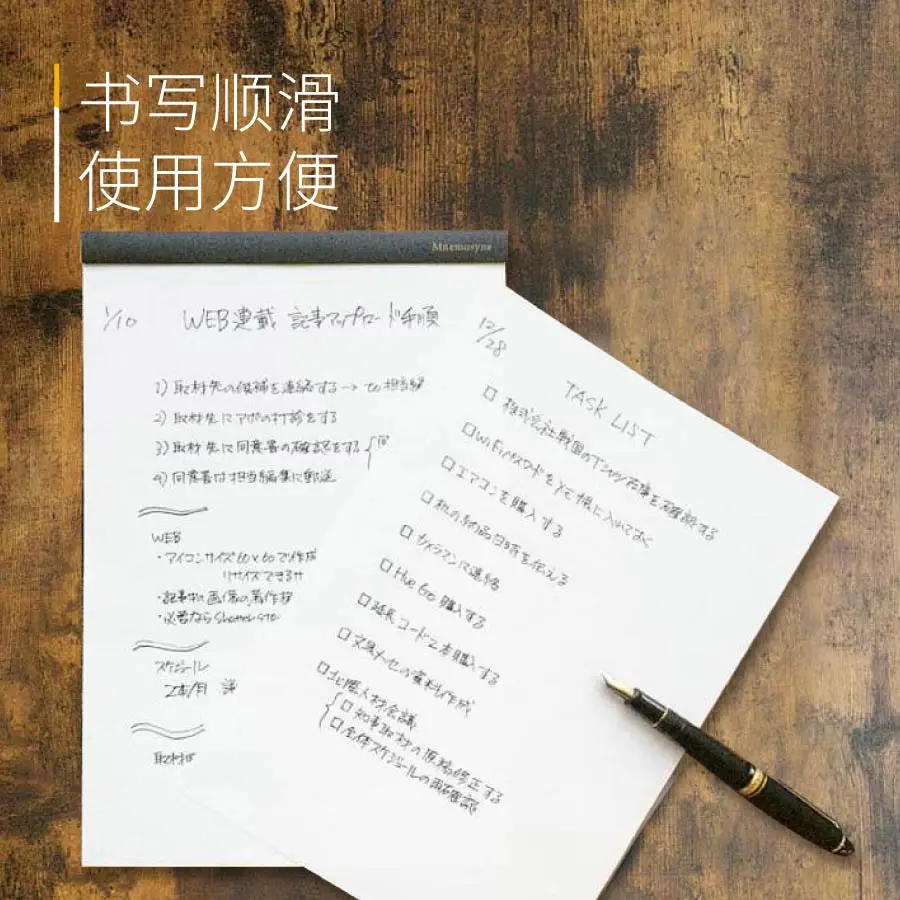 书写顺滑
使用方便
Mnemosyne
1/10 WEB連載 記事アップロード手順
1) 取材先の候補を連絡する → to 担当編
2) 取材先にアポの打診をする
3) 取材先に同意書の確認をする
4) 同意書は担当編集に郵送
WEB
・アイコンサイズ 60×60で作成
リサイズできるサ
・記事の画像の
・必要なら
スケジュール
2本/月
取材
12/28
TASK LIST
□ 株式会社 のTシャツ在庫を確認する
□ WiFiパスワードを 帳に入れておく
□ エアコンを購入する
□ 机の納品日時を伝える
□ カメラマンに連絡
□ 購入する
□ 延長コード2本購入する
□ 文具 の資料作成
□ 人材会議
□ 知事取材の原稿修正する
□ 全体スケジュールの再確認